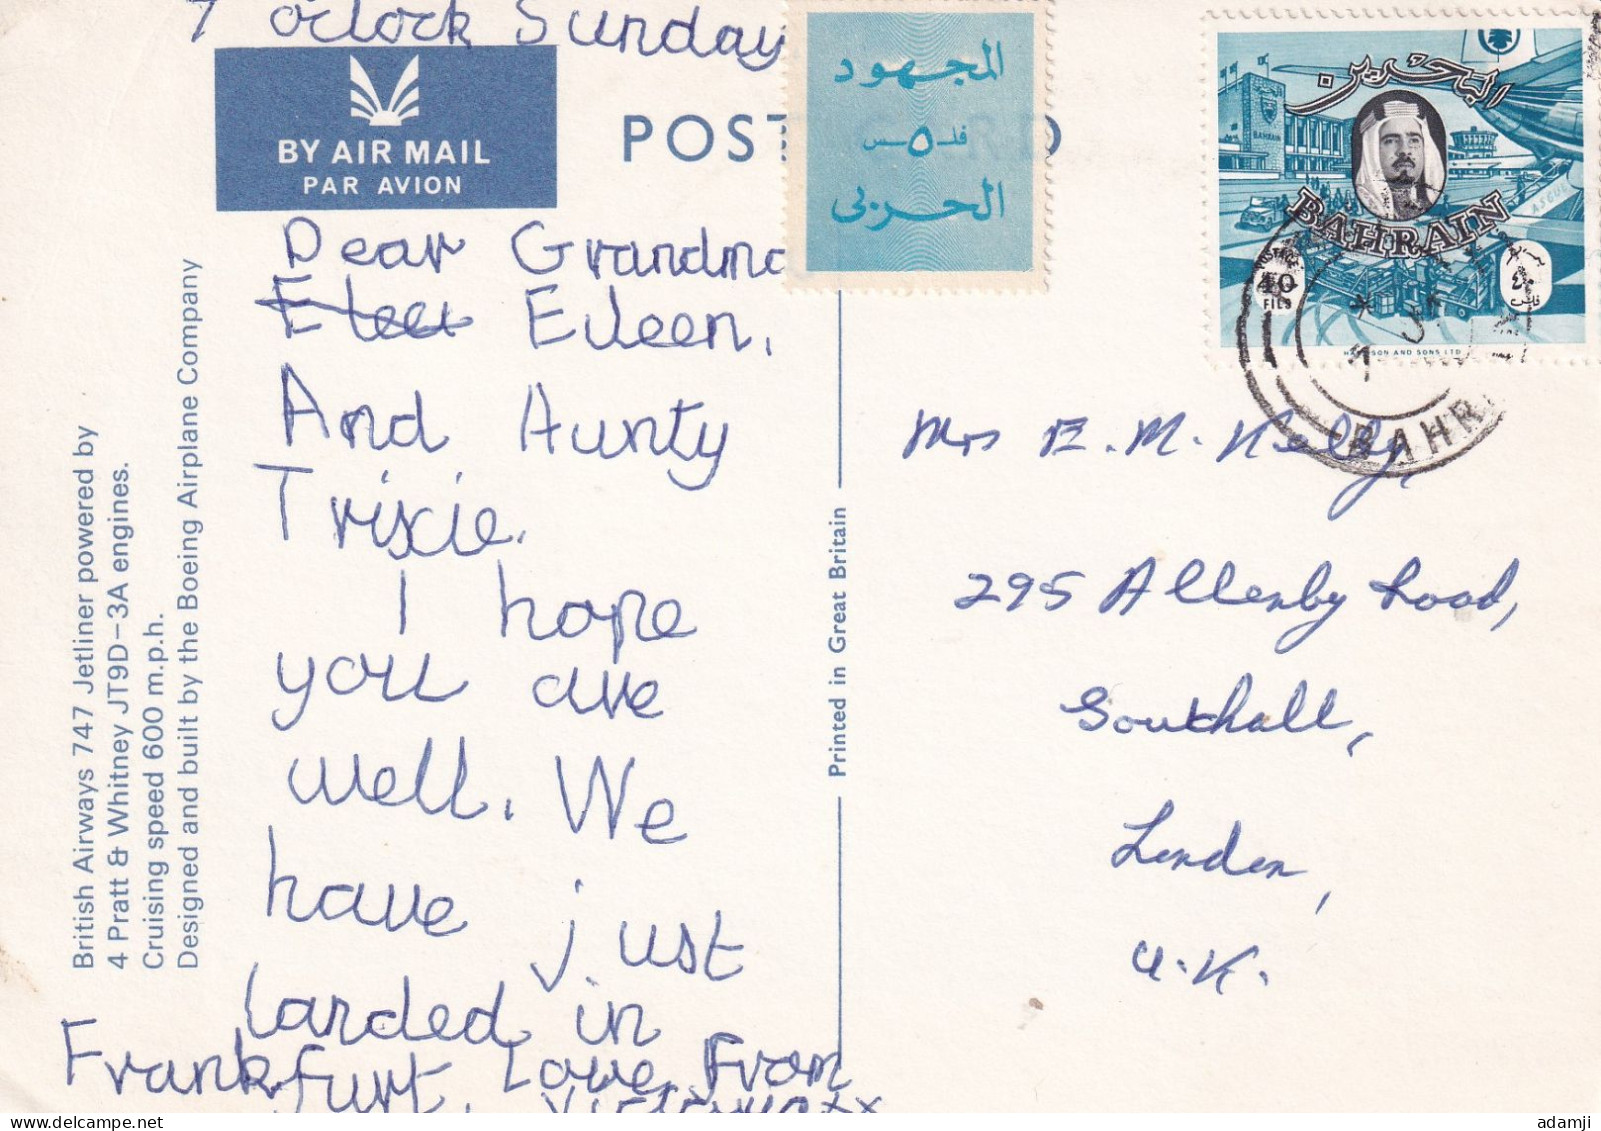 7 o'clock Sunday
BY AIR MAIL
PAR AVION
POST
D
Dear Grandma
Eileen,
And Aunty
Trixie.
I hope
you are
well. We
have just
landed in
Frankfurt. Love From
Victoria xx
British Airways 747 Jetliner powered by
4 Pratt & Whitney JT9D–3A engines.
Cruising speed 600 m.p.h.
Designed and built by the Boeing Airplane Company
Printed in Great Britain
المجهود
فلـ ٥ ـس
الحربي
البحرين
BAHRAIN
BAHRAIN
POSTAGE
40
FILS
٤٠
فلس
HARRISON AND SONS LTD
BAHR
Mrs E. M. Kelly,
295 Allenby Road,
Southall,
London,
U.K.
adamji